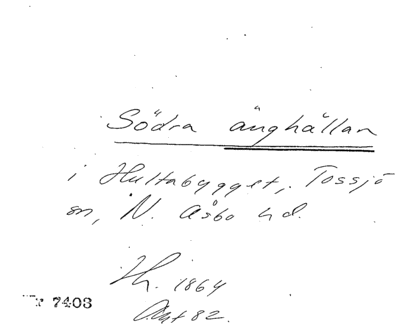 Södra änghällan
i Hultabygget, Tossjö
sn, N. Åsbo hd.
Th. 1864
Akt 82.
7403